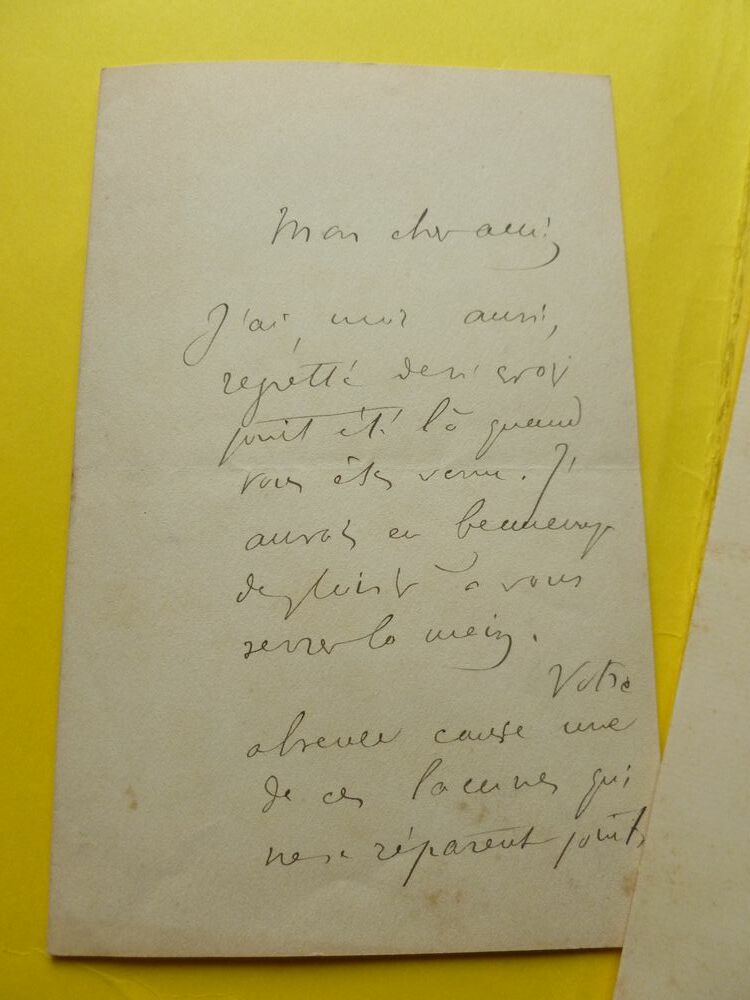 Mon cher ami,
J'ai, moi aussi,
regretté de n'avoir
point été là quand
vous êtes venu. J'
aurois eu beaucoup
de plaisir à vous
serrer la main.
Votre
absence cause une
de ces lacunes qui
ne se réparent point,